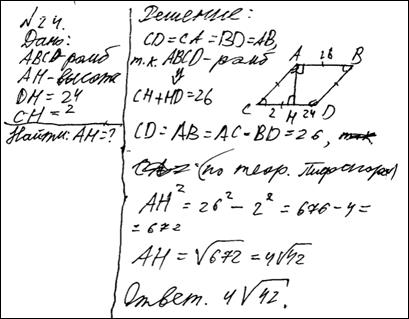 № 24.
Дано:
ABCD-ромб
AH-высота
DH = 24
CH = 2
Найти: AH=?
Решение:
CD = CA = BD = AB,
т.к. ABCD - ромб
⇓
CH + HD = 26
A 26 B
C 2 H 24 D
CD = AB = AC = BD = 26,
(по теор. Пифагора)
AH² = 26² - 2² = 676 - 4 =
= 672
AH = √672 = 4√42
Ответ. 4√42.